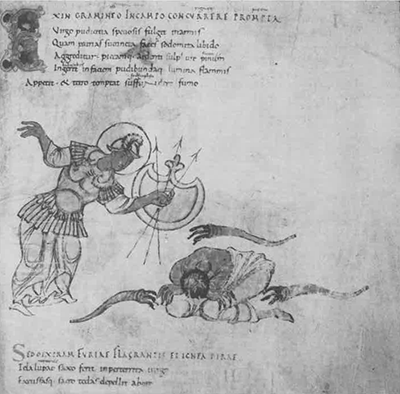 EXIN GRAMINEO INCAMPO CONCURRERE PROMPTA
Virgo pudicitia speciosis fulget inarmis
Quam patrias succincta faces sodomita libido
Aggreditur piceamq; ardenti sulphure pinum
Ingerit infaciem pudibundaq; lumina flammis
Appetit & tetro temptat suffundere fumo
SED DEXTRAM FURIAE FLAGRANTIS ET IGNEA DIRAE
Tela lupae saxo ferit inperterrita virgo
Excussasq; sacro taedas depellit abore